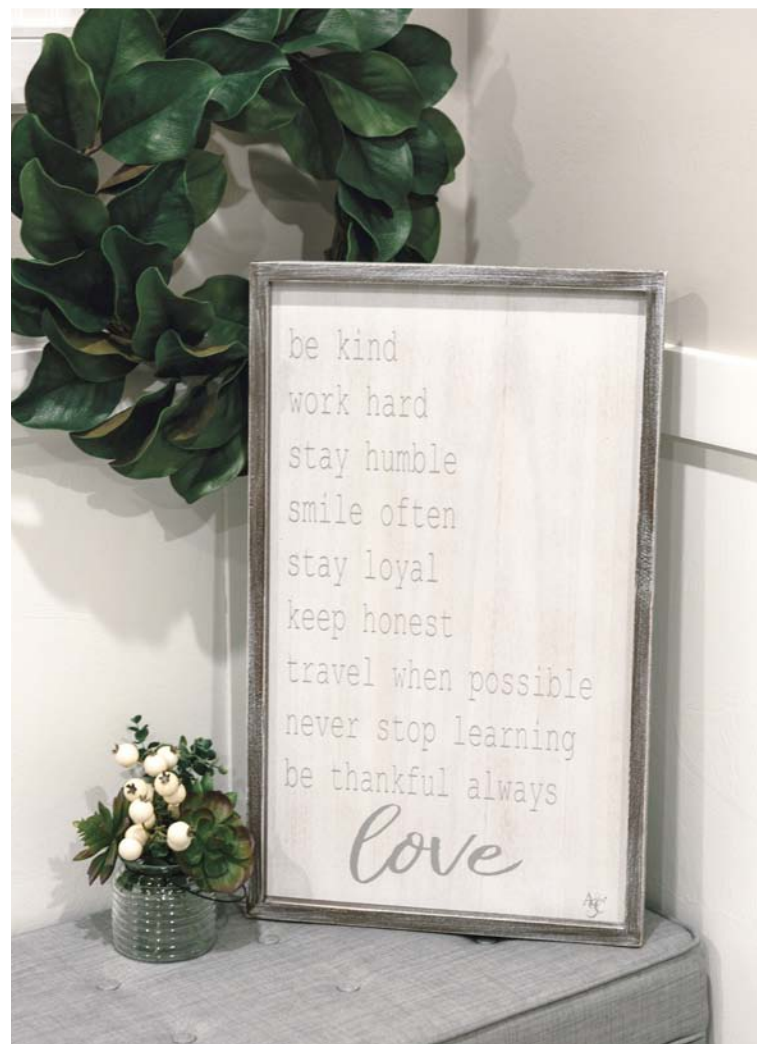 be kind
work hard
stay humble
smile often
stay loyal
keep honest
travel when possible
never stop learning
be thankful always
love